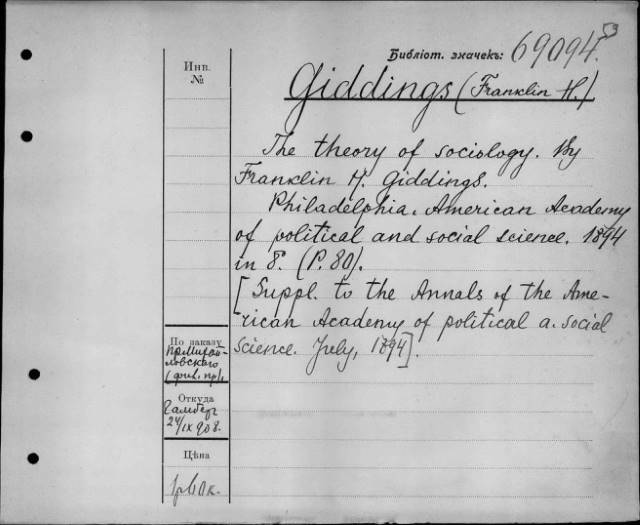 Библіот. значекъ: 69094.
Инв.
№
Giddings (Franklin H.)
The theory of sociology. By
Franklin H. Giddings.
Philadelphia. American Academy
of political and social science. 1894
in 8°. (P. 80).
[Suppl. to the Annals of the Ame-
rican Academy of political a. social
science. July, 1894].
По заказу
пр. Михай-
ловскаго
Откуда
Гамбер
24/IX 908.
Цѣна
1р 60к.